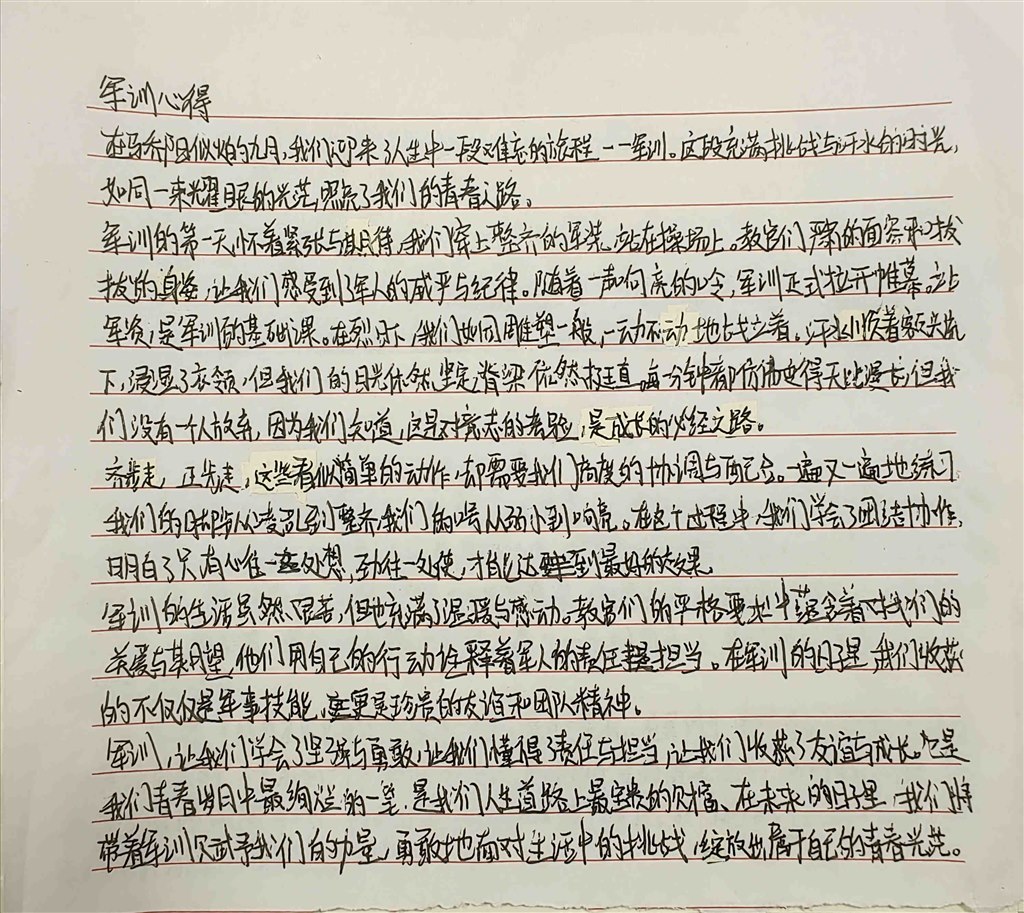 军训心得
在骄阳似火的九月,我们迎来了人生中一段难忘的旅程——军训。这段充满挑战与汗水的时光,
如同一束耀眼的光芒,照亮了我们的青春之路。
军训的第一天,怀着紧张与期待,我们穿上整齐的军装,站在操场上。教官们严肃的面容和挺
拔的身姿,让我们感受到了军人的威严与纪律。随着一声响亮的口令,军训正式拉开帷幕。站
军姿,是军训的基础课。在烈日下,我们如同雕塑一般,一动不动地站立着。汗水顺着额头流
下,浸湿了衣领,但我们的目光依然坚定,脊梁依然挺直。每一分钟都仿佛过得无比漫长,但我
们没有一个人放弃,因为我们知道,这是对意志的考验,是成长的必经之路。
齐步走,正步走,这些看似简单的动作,却需要我们高度的协调与配合。一遍又一遍地练习
我们的脚步从凌乱到整齐,我们的口号从弱小到响亮。在这个过程中,我们学会了团结协作,
明白了只有心往一处想,劲往一处使,才能达到最好的效果
军训的生活虽然艰苦,但也充满了温暖与感动。教官们的严格要求中蕴含着对我们的
关爱与期望,他们用自己的行动诠释着军人的责任担当。在军训的日子里,我们收获
的不仅仅是军事技能,更是珍贵的友谊和团队精神。
军训,让我们学会了坚强与勇敢,让我们懂得了责任与担当,让我们收获了友谊与成长。它是
我们青春岁月中最绚烂的一笔,是我们人生道路上最宝贵的财富。在未来的日子里,我们将
带着军训赋予我们的力量,勇敢地面对生活中的挑战,绽放出属于自己的青春光芒。